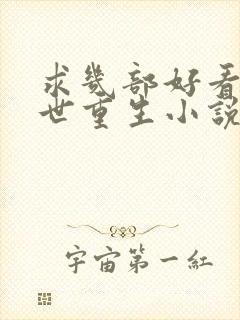 求幾部好看
世重生小說
宇宙第一紅